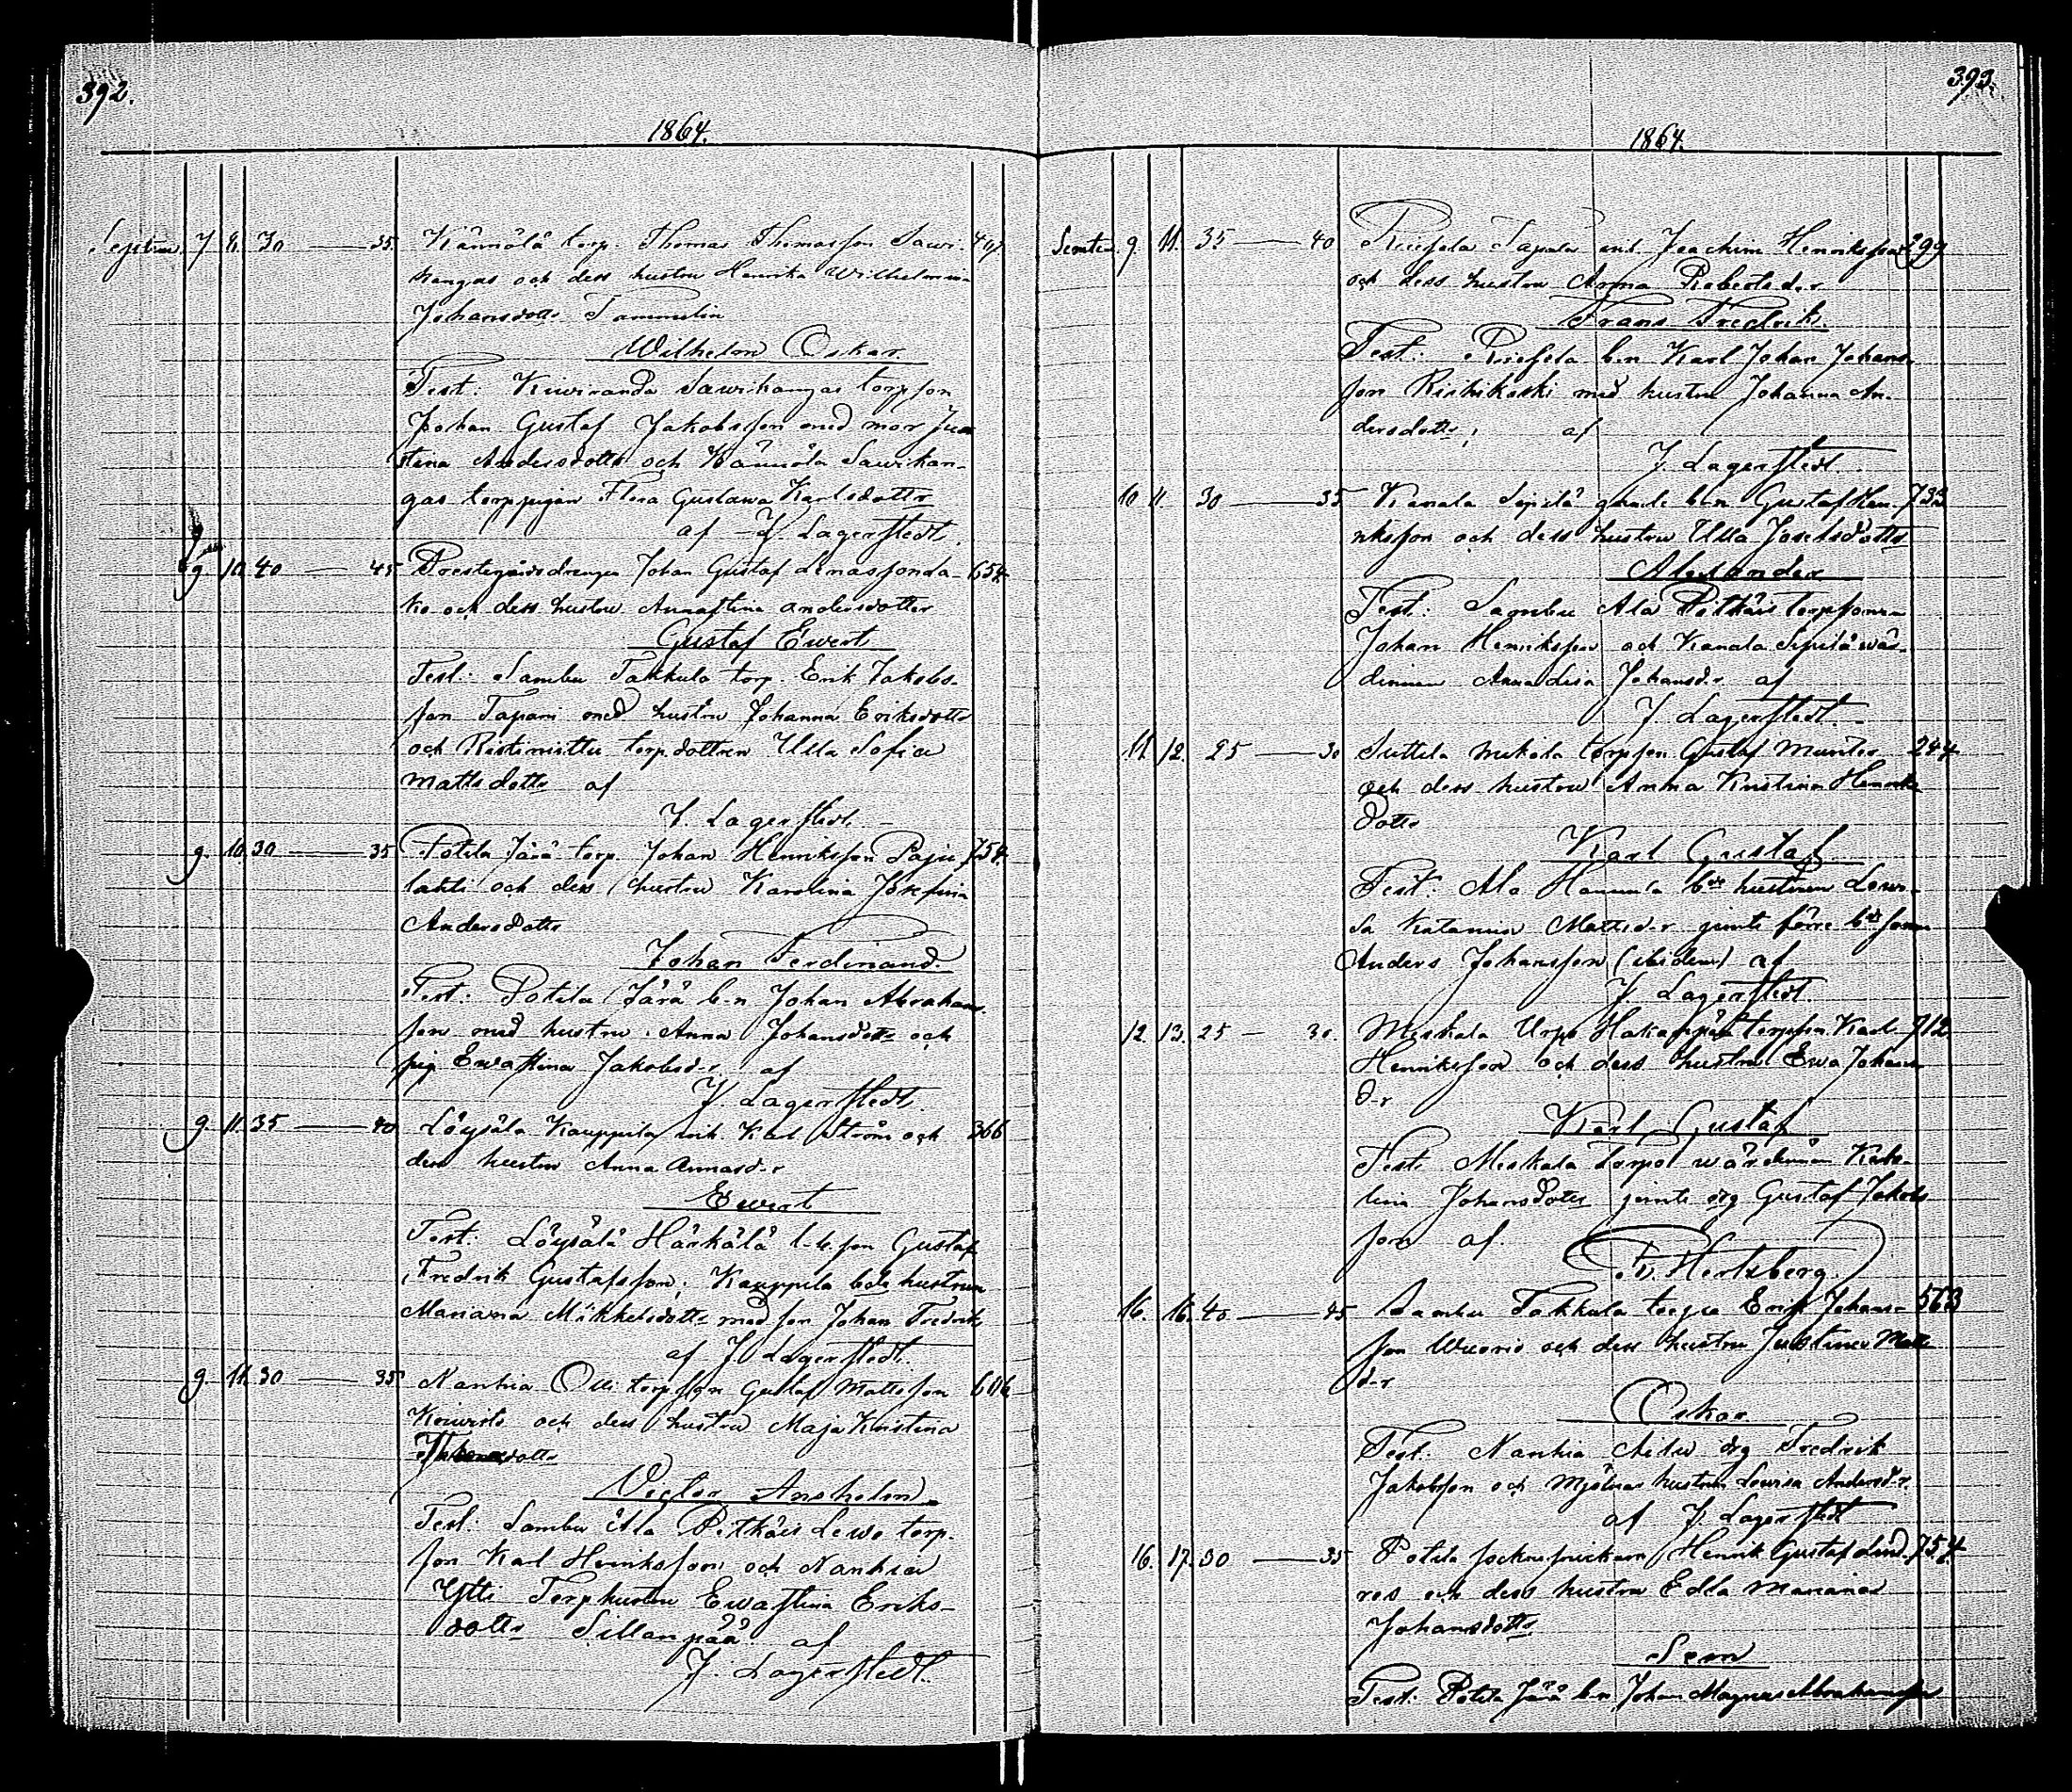 392.
1864.
Septem. 7 8. 30 — 35 Kännölä torp. Thomas Thomasson Sauri- 407
kangas och dess hustru Henrika Wilhelmin
Johansdotter Tammelin
Wilhelm Oskar.
Test: Kiwiranda Saurikangas torp son
Johan Gustaf Jakobsson med mor Ju
stina Andersdotter och Kännölä Saurikan-
gas torp pigan Flora Gustawa Karlsdotter
af J. Lagerstedt.
9 10. 40 — 45 Prestegårdsdrengen Johan Gustaf 654
ko och dess hustru Annastina andersdotter
Gustaf Ewert
Test: Sambu Takkula torp. Erik Jakobs-
son Tapani med hustru Johanna Eriksdotter
och torp.dottren Ulla Sofia
Mattsdotter af
J. Lagerstedt.
9. 10. 30 — 35 Potila Järä torp. Johan Henriksson Paju 754
lahti och dess hustru Karolina Josefina
Andersdotter
Johan Ferdinand.
Test: Potila Järä b-n Johan Abraham
son med hustru Anna Johansdotter och
pig Ewastina Jakobsd-r af
J. Lagerstedt.
9. 11. 35 — 40 Löysälä Kauppila inh. Karl Ström och 366
dess hustru Anna Annasd-r
Ewert
Test: Löysälä Härkälä l-b. son Gustaf
Fredrik Gustafsson; Kauppila bde hustrun
Mariana Mikkelsdotter med son Johan Fredrik
af J. Lagerstedt.
9. 11. 30 — 35 Nanhia Olli torpson Gustaf Mattsson 606
Koiwisto och dess hustru Maja Kristina
dotter
Victor Anshelm
Test: Sambu Ala Pitkäis Lewo torp.
son Karl Henriksson och Nanhia
Ylli Torphustru Ewastina Eriks-
dotter Sillanpää af
J. Lagerstedt.
393.
1864.
9. 11. 35 — 40 Tapala inh. Joachim Henriksson 299
och dess hustru Anna Robertsd-r
Frans Fredrik.
Test: b-n Karl Johan Johans-
son med hustru Johanna An-
dersdotter; af
J. Lagerstedt.
10 11. 30 — 35 Kanala Sepilä b-n Gustaf Hen- 733
riksson och dess hustru Ulla Josefsdotter
Alexander
Test: Sambu Ala Pitkäis torpsonen
Johan Henriksson och Kanala Sipilä wär-
dinnan Anna Lisa Johansd-r af
J. Lagerstedt.
11. 12. 25 — 30 Suttila Mikola torpson Gustaf Munter 244
och dess hustru Anna Kristina Henriks
dotter
Karl Gustaf
Test: Ala Hannula bde hustrun Lowi-
sa Katarina Mattsd-r jemte förre bde sonen
Anders Johansson (ibidem) af
J. Lagerstedt.
12. 13. 25 — 30. Meskala Urpo Hakanpää torpson Karl 712
Henriksson och dess hustru Ewa Johans
d-r
Karl Gustaf
Test: Meskala wärdinnan Karo-
lina Johansdotter jemte drg Gustaf Jakobs
son af.
Fr. Hertzberg.
16. 16. 40 — 45 Sambu Takkula Erik Johans- 563
son Wuorio och dess hustru Justina Matts
d-r
Oskar
Test: Nanhia drg Fredrik
Jakobsson och Mjölnars hustrun Lowisa Andersd-r.
af J. Lagerstedt
16. 17. 30 — 35 Potila sockneskrifvaren Henrik Gustaf Lind- 754
ros och dess hustru Edla Mariana
Johansdotter
Sem
Test: Potila Järä b-n Johan Magnus Abrahamsson